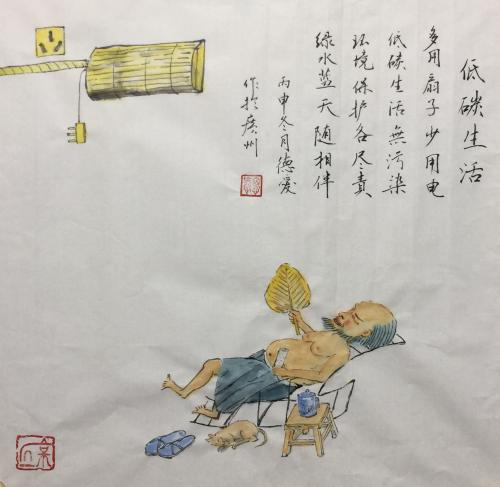 低碳生活
多用扇子少用电
低碳生活無污染
环境保护各尽责
绿水蓝天随相伴
丙申冬月德爱
作於廣州